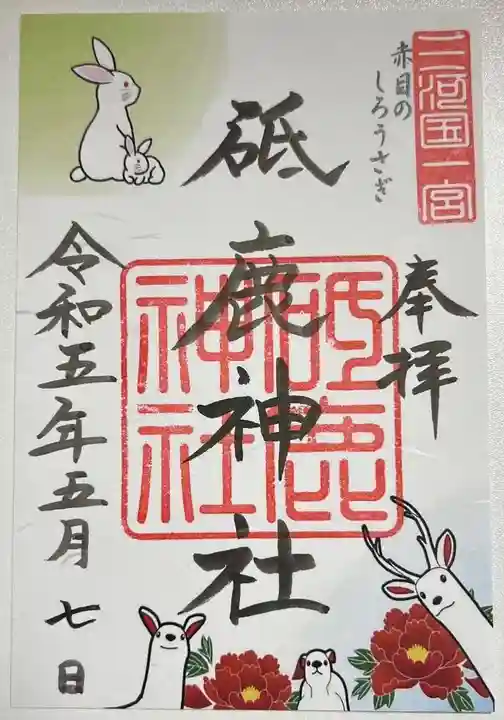 三河国一宮
赤目の
しろうさぎ
奉拝
砥鹿神社
砥鹿神社
令和五年五月七日